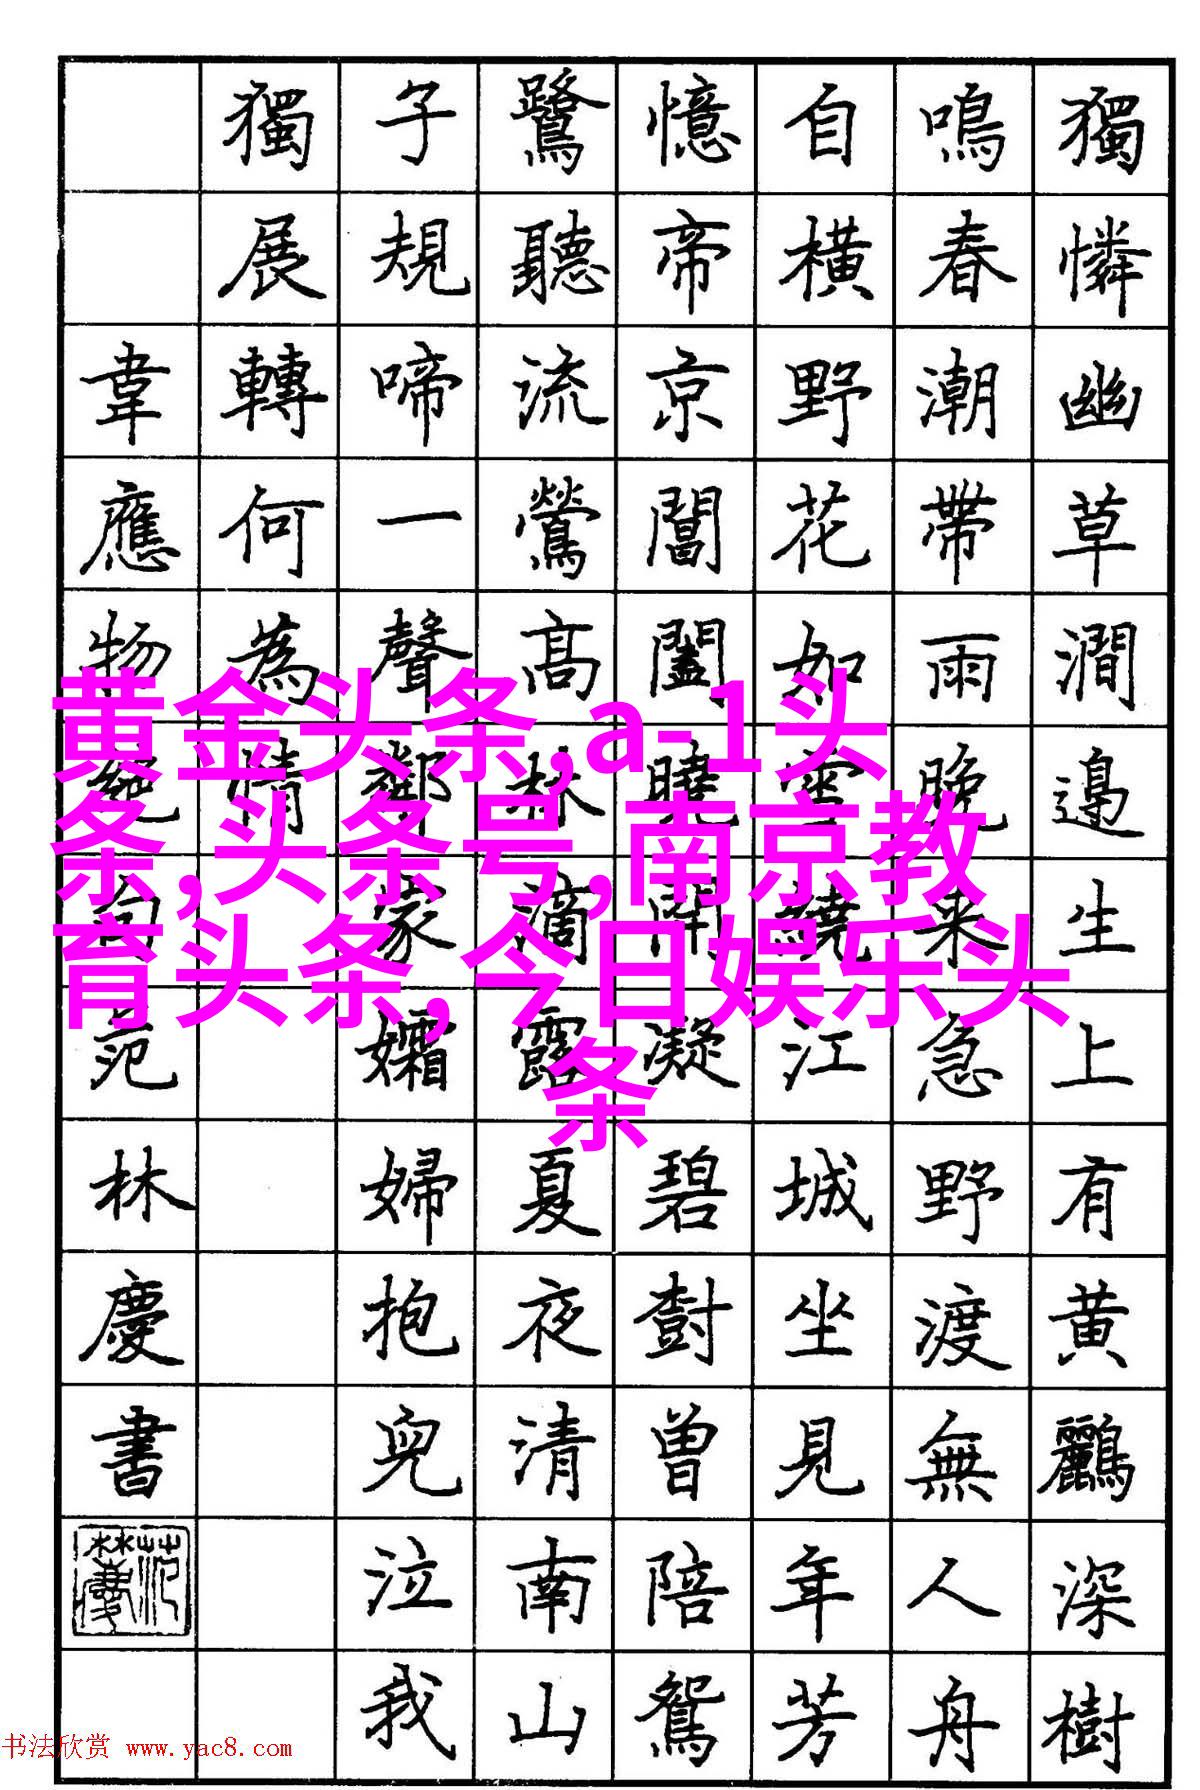 獨憐幽草澗邊生上有黄鸝深樹
鳴春潮帶雨晚来急野渡無人舟
自橫野花如雪繞江城坐見年芳
憶帝京閶闔曉開凝碧樹曾陪鴛
鷺聽流鶯高林滴露夏夜清南山
子規啼一聲鄰家孀婦抱兒泣我
獨展轉何為情
韋應物絕句范林慶書
范林慶
黄金头条,a-1头
条,头条号,南京教
育头条,今日娱乐头
条
书法欣赏 www.yac8.com